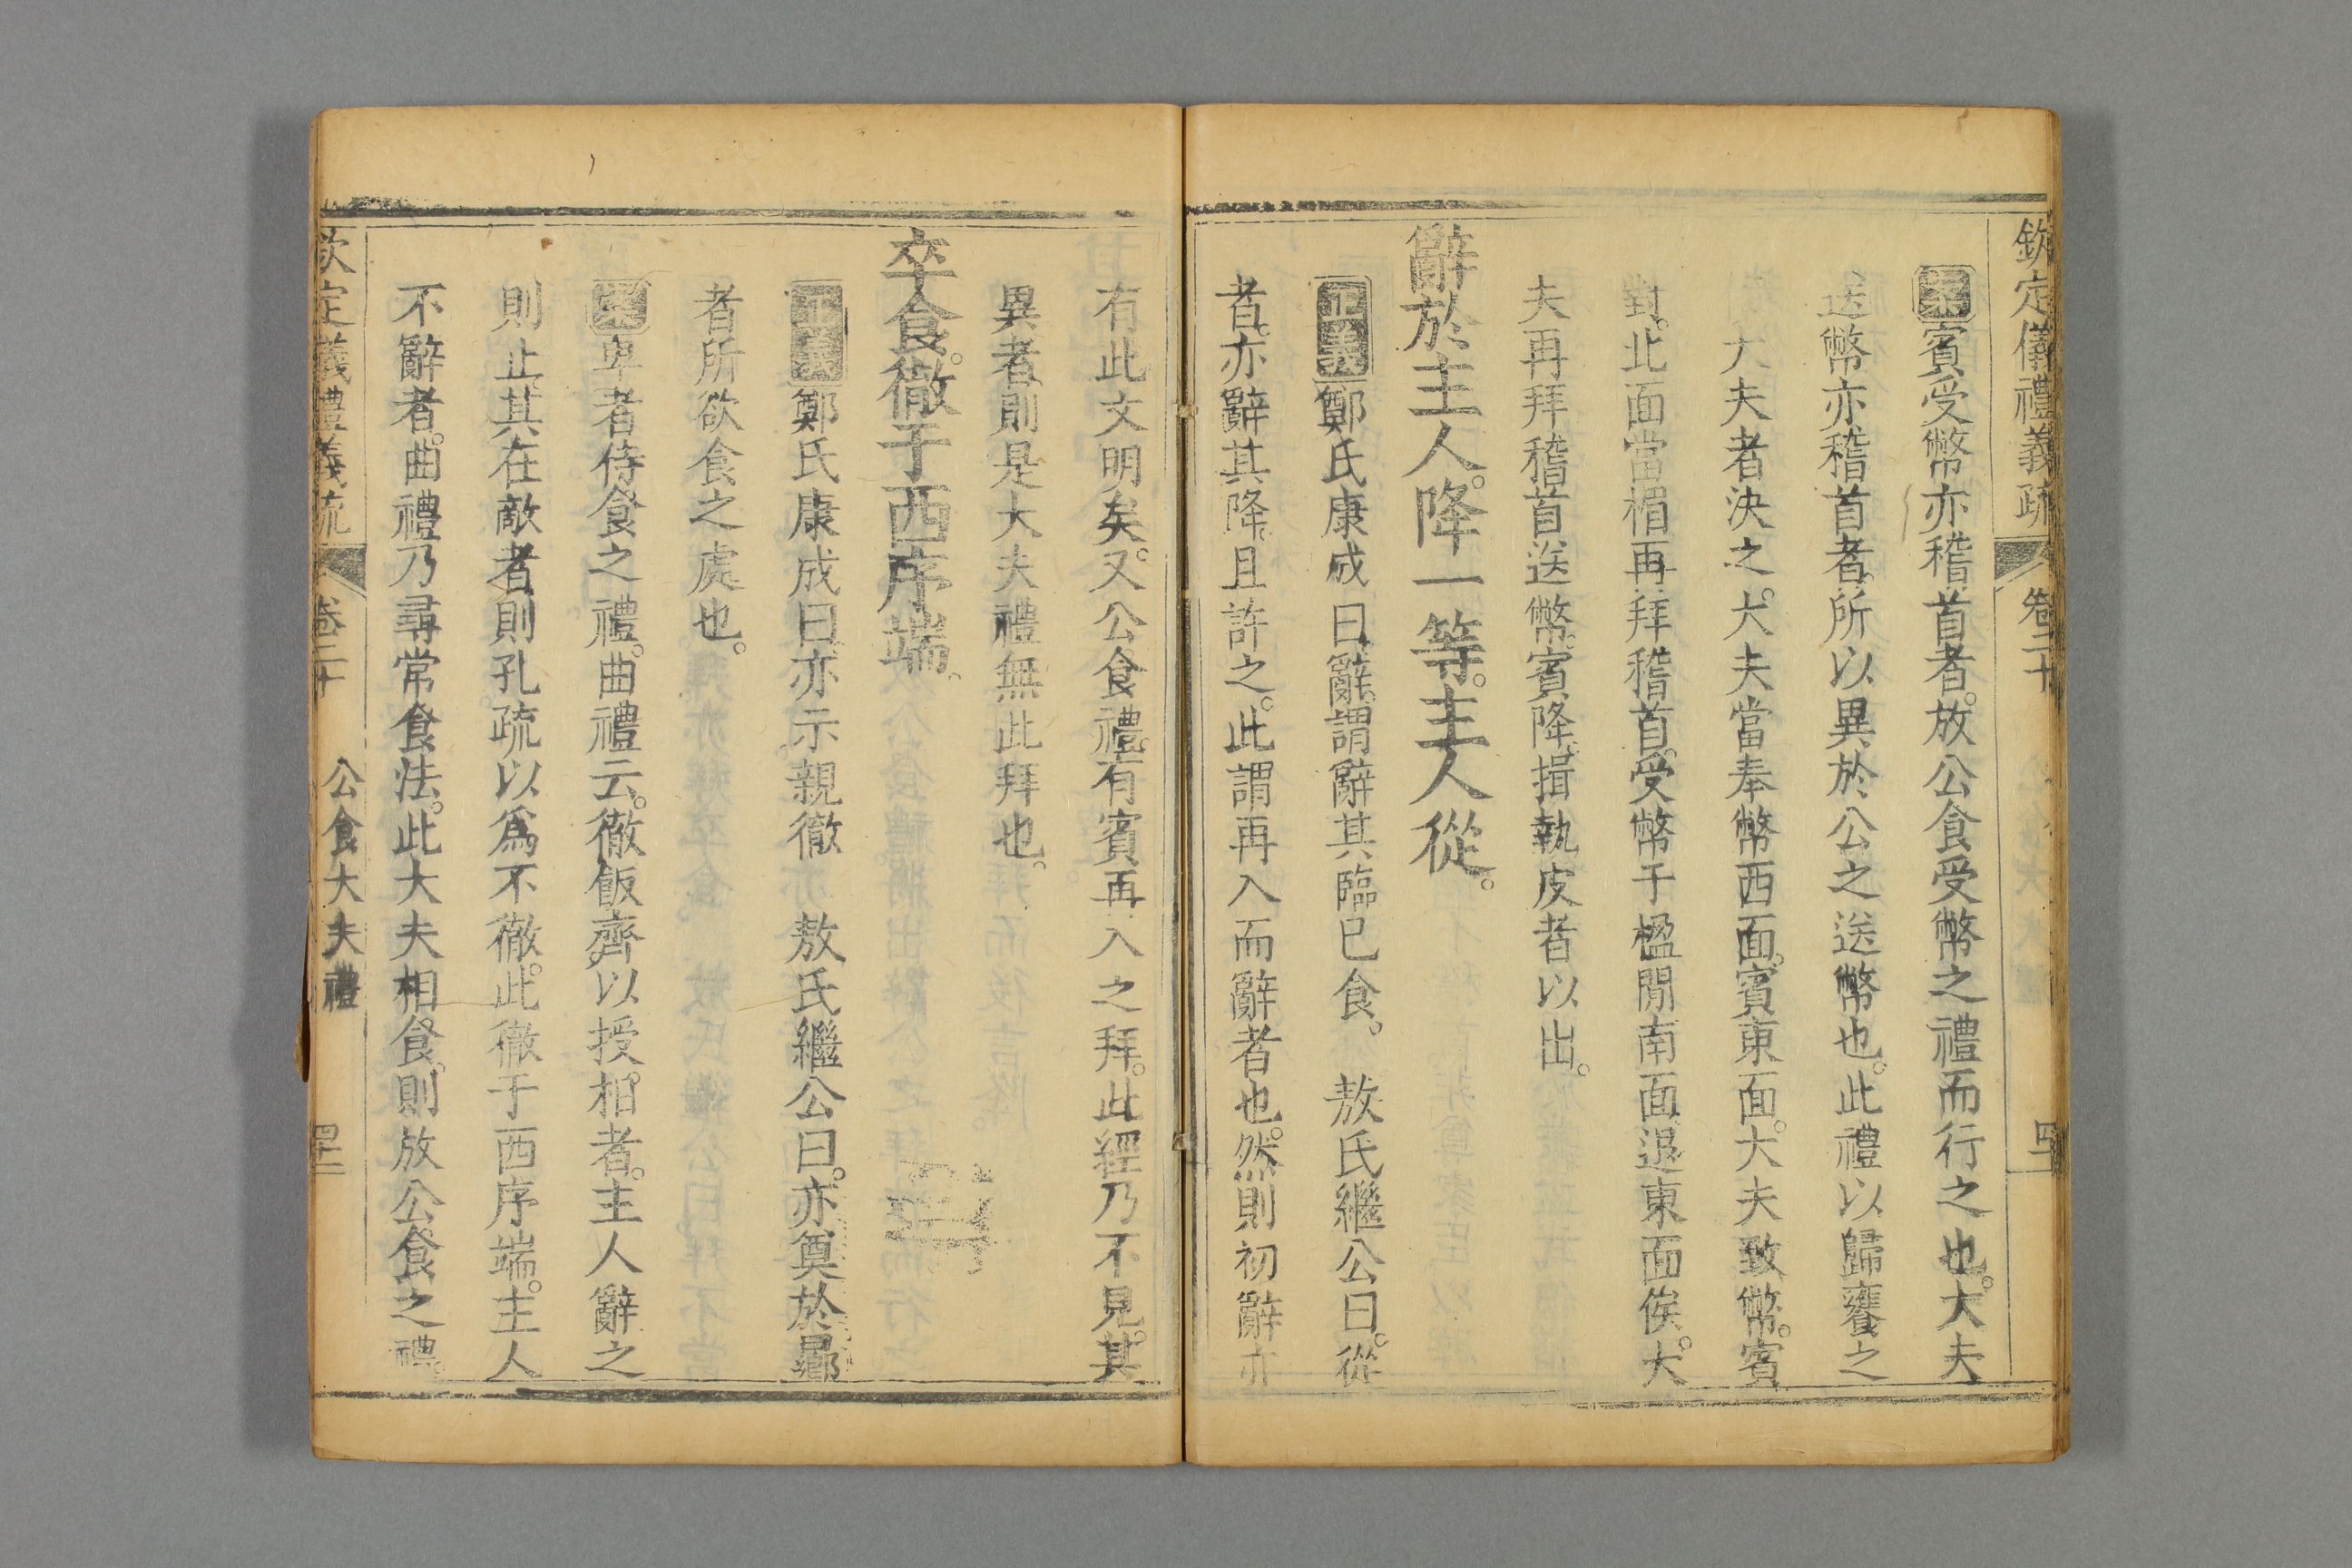 欽定儀禮義疏 卷二十
案賓受幣亦稽首者。放公食受幣之禮而行之也。大夫
送幣亦稽首者。所以異於公之送幣也。此禮以歸饔之
大夫者決之。大夫當奉幣西面。賓東面。大夫致幣。賓
對。北面當楣再拜稽首。受幣于楹閒南面。退東面俟。大
夫再拜稽首送幣。賓降。揖執皮者以出。
辭於主人。降一等。主人從。
正義鄭氏康成曰。辭。謂辭其臨已食。 敖氏繼公曰。從
者。亦辭其降。且許之。此謂再入而辭者也。然則初辭亦
有此文明矣。又公食禮。有賓再入之拜。此經乃不見。其
異者。則是大夫禮無此拜也。
卒食。徹于西序端。
正義鄭氏康成曰。亦示親徹 敖氏繼公曰。亦奠於曏
者所欲食之處也。
案卑者侍食之禮。曲禮云。徹飯齊。以授相者。主人辭之
則止。其在敵者。則孔疏以爲不徹。此徹于西序端。主人
不辭者。曲禮乃尋常食法。此大夫相食。則放公食之禮。
欽定儀禮義疏 卷二十 公食大夫禮